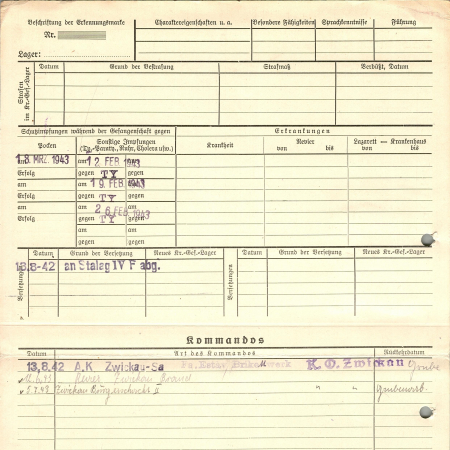 Beschriftung der Erkennungsmarke
Nr.
Lager:
Charaktereigenschaften u. a.
Besondere Fähigkeiten
Sprachkenntnisse
Führung
Strafen im Kr.-Gef.-Lager
Datum Grund der Bestrafung Strafmaß Verbüßt, Datum
Schutzimpfungen während der Gefangenschaft gegen
Erkrankungen
Pocken
Sonstige Impfungen
(Ty.-Paraty., Ruhr, Cholera usw.)
Krankheit
Revier
von bis
Lazarett — Krankenhaus
von bis
am 18. MRZ. 1943 am 12. FEB. 1943
Erfolg gegen TY gegen
am am 19. FEB. 1943
Erfolg gegen TY gegen
am am 26. FEB. 1943
Erfolg gegen TY gegen
am am
gegen gegen
Versetzungen
Datum Grund der Versetzung Neues Kr.-Gef.-Lager
Datum Grund der Versetzung Neues Kr.-Gef.-Lager
18.8-42 an Stalag IV F abg.
Kommandos
Datum Art des Kommandos Rückkehrdatum
13.8.42 A.K. Zwickau-Sa K.O. Zwickau Grube
Revier Zwickau
Zwickau Bürgerschacht II " "